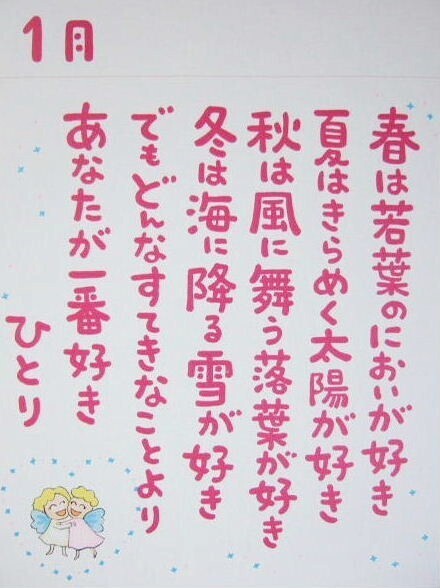 1月
春は若葉のにおいが好き
夏はきらめく太陽が好き
秋は風に舞う落葉が好き
冬は海に降る雪が好き
でもどんなすてきなことより
あなたが一番好き
ひとり